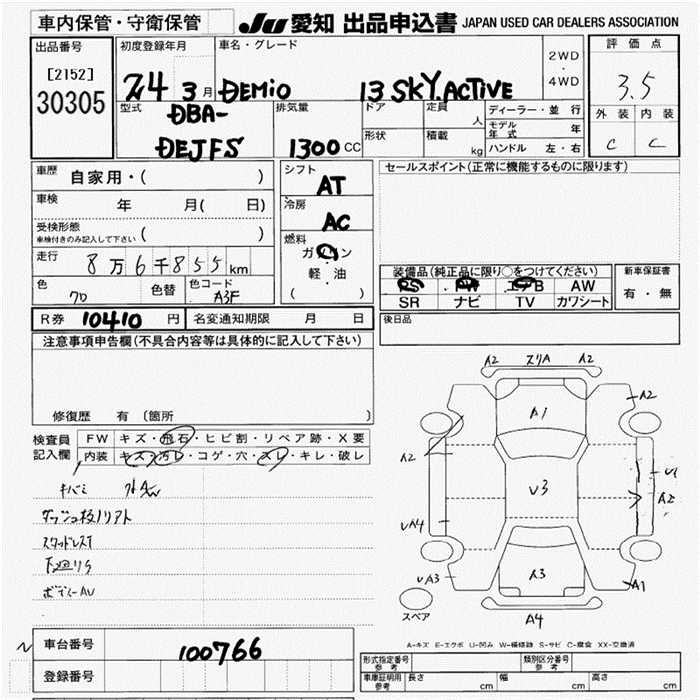 車内保管・守衛保管
JU 愛知 出品申込書 JAPAN USED CAR DEALERS ASSOCIATION
出品番号
[2152]
30305
初度登録年月
24 3月
車名・グレード
DEMiO 13 SKY.ACTIVE
2WD
・
4WD
評価点
3.5
外装 内装
C C
型式
DBA-
DEJFS
排気量
1300CC
ドア
定員 人
形状
積載 kg
ディーラー・並行
モデル年式 年
ハンドル 左・右
車歴 自家用・( )
車検 年 月( 日)
受検形態
車検付きのみ記入して下さい ( )
走行 8万6千855km
色 クロ
色替
色コード A3F
シフト
AT
冷房
AC
燃料
ガソリン
・
軽・油
( )
セールスポイント(正常に機能するものに限ります)
装備品(純正品に限り○をつけてください)
PS PW エアB AW
SR ナビ TV カワシート
新車保証書
有・無
R券 10410円
名変通知期限 月 日
後日品
注意事項申告欄(不具合内容等は具体的に記入して下さい)
修復歴 有 〔箇所 〕
検査員
記入欄
FW キズ・飛石・ヒビ割・リペア跡・X要
内装 キズ・汚レ・コゲ・穴・スレ・キレ・破レ
ダッシュ板ノリアト
スタッドレス
下廻りS
ボデーAU
A2 スリA A2
A2
A1
A2
U3
U1
A2
UA4
UA3
A3
A1
スペア
A4
A-キズ E-エクボ U-凹み W-補修跡 S-サビ C-腐食 XX-交換済
車台番号 100766
登録番号
形式指定番号
参考
類別区分番号
参考
車庫証明用
参考
長さ cm 幅 cm 高さ cm